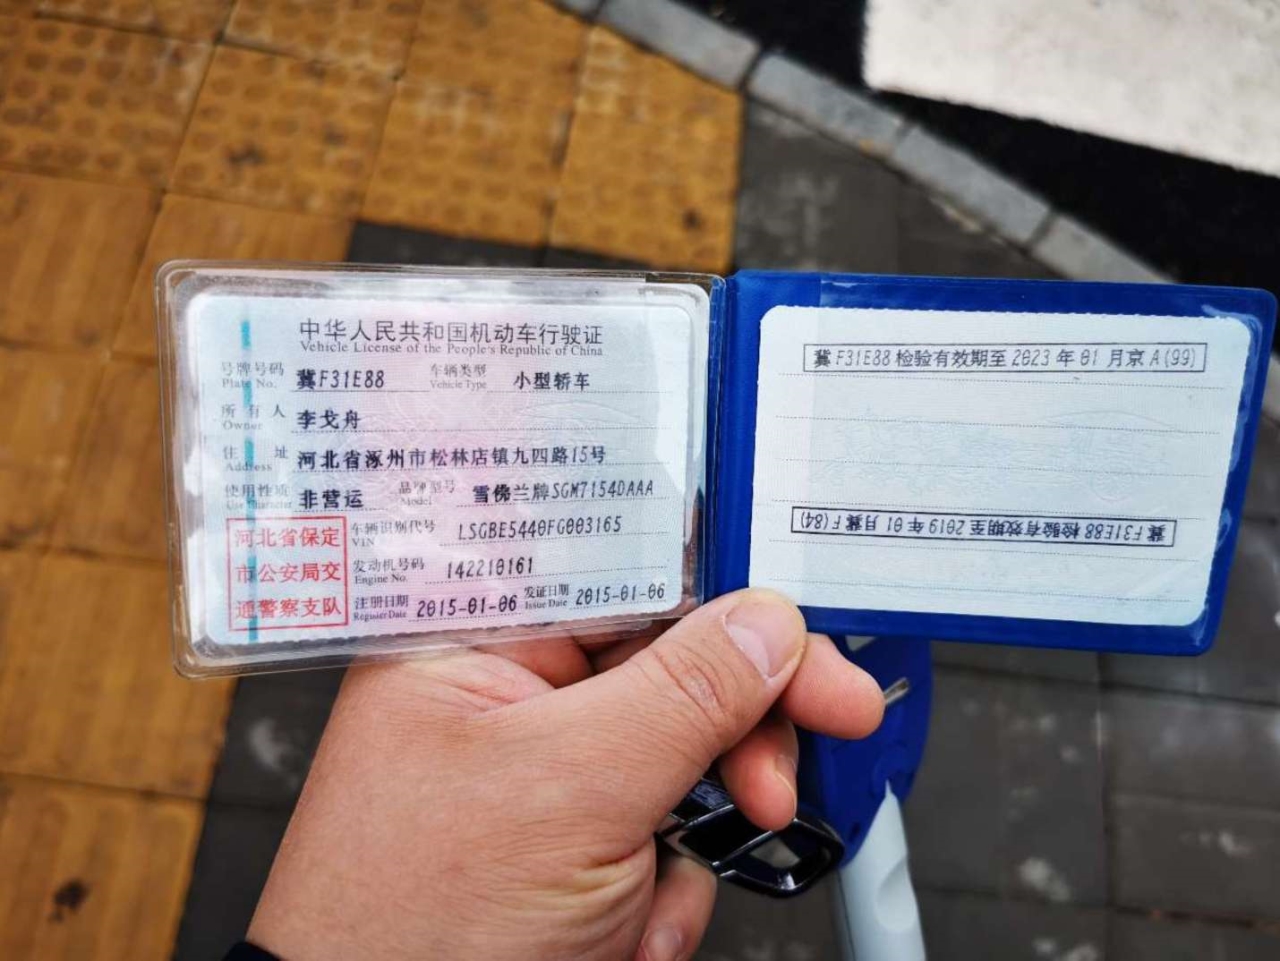 中华人民共和国机动车行驶证
Vehicle License of the People's Republic of China
号牌号码 Plate No. 冀F31E88 车辆类型 Vehicle Type 小型轿车
所有人 Owner 李戈舟
住址 Address 河北省涿州市松林店镇九四路15号
使用性质 Use Character 非营运 品牌型号 Model 雪佛兰牌SGM7154DAAA
河北省保定
市公安局交
通警察支队
车辆识别代号 VIN LSGBE5440FG003165
发动机号码 Engine No. 142210161
注册日期 Register Date 2015-01-06 发证日期 Issue Date 2015-01-06
冀F31E88检验有效期至2023年01月京A(99)
冀F31E88检验有效期至2019年01月冀F(84)